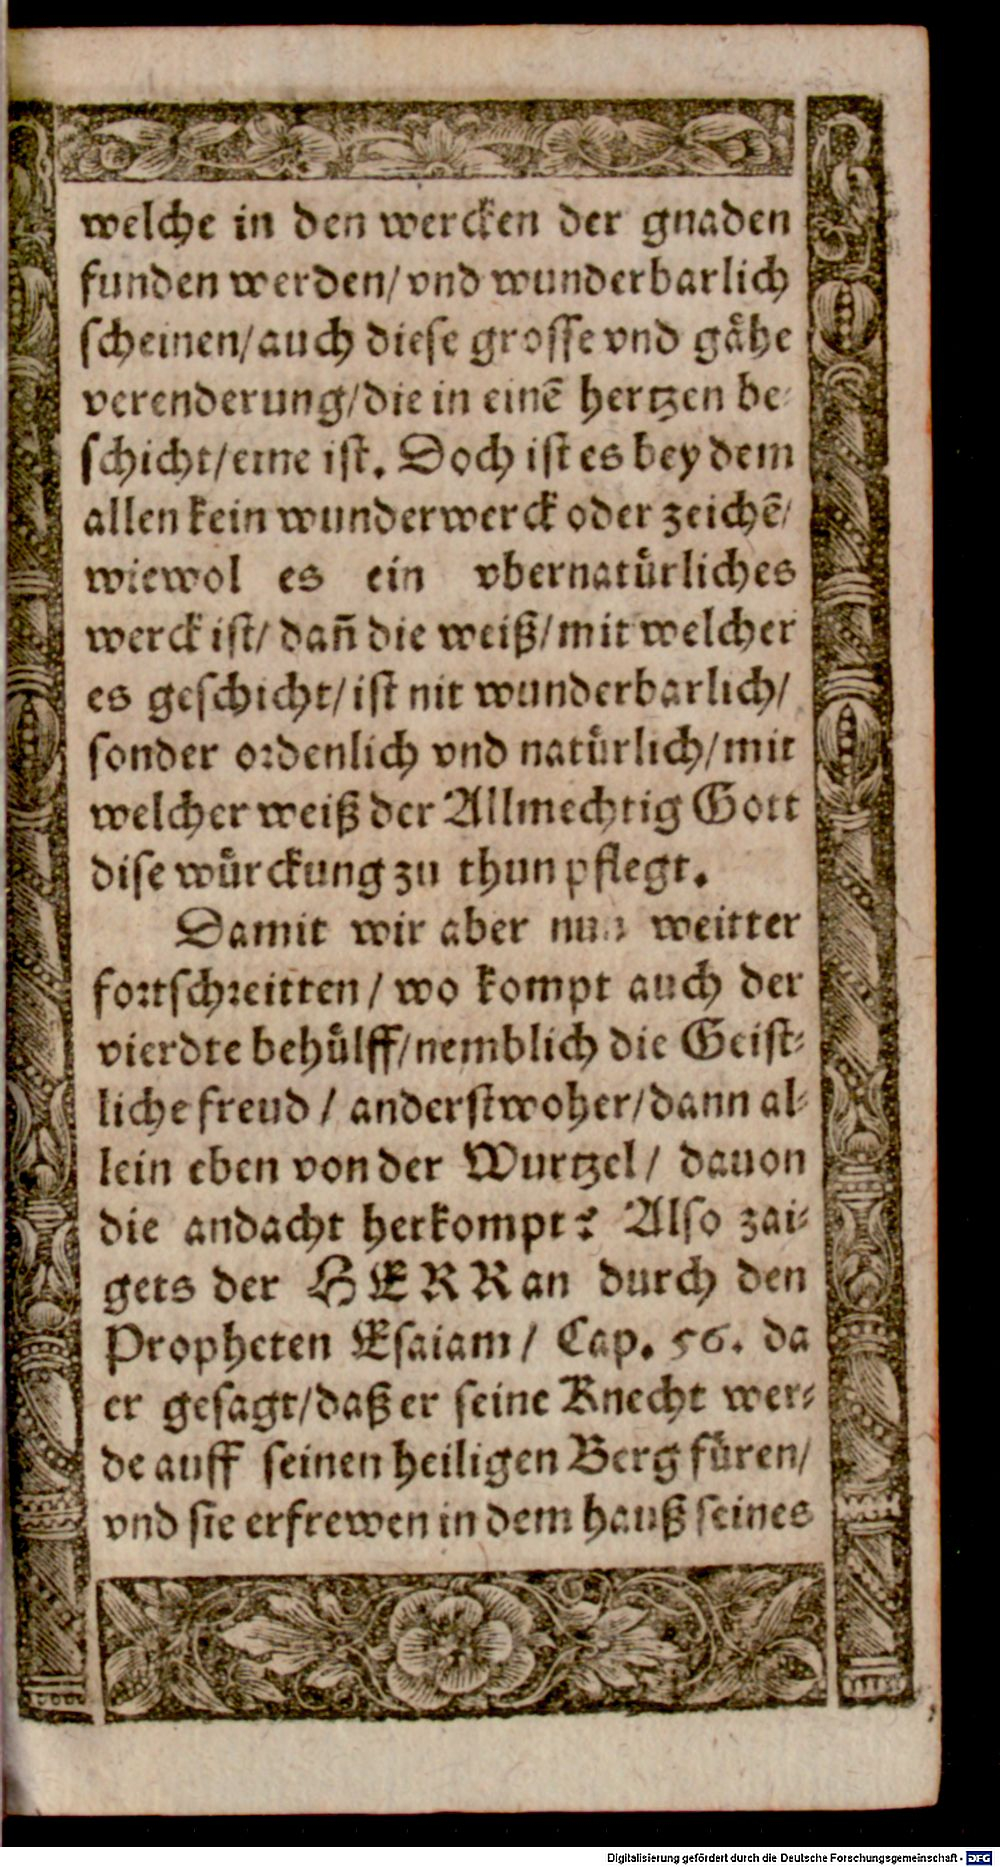 welche in den wercken der gnaden
funden werden/ vnd wunderbarlich
scheinen/ auch diese grosse vnd gåhe
verenderung/ die in einē hertzen be-
schicht/ eine ist. Doch ist es bey dem
allen kein wunderwerck oder zeichē/
wiewol es ein vbernatůrliches
werck ist/ dañ die weiß/ mit welcher
es geschicht/ ist nit wunderbarlich/
sonder ordenlich vnd natůrlich/ mit
welcher weiß der Allmechtig Gott
dise wůrckung zu thun pflegt.
Damit wir aber weitter
fortschreitten / wo kompt auch der
vierdte behůlff/ nemblich die Geist-
liche freud / anderstwoher/ dann al-
lein eben von der Wurtzel / dauon
die andacht herkompt? Also zai-
gets der HERR an durch den
Propheten Esaiam / Cap. 56. da
er gesagt/ daß er seine Knecht wer-
de auff seinen heiligen Berg fůren/
vnd sie erfrewen in dem hauß seines
Digitalisierung gefördert durch die Deutsche Forschungsgemeinschaft - DFG